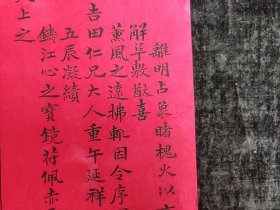 離明占象睹槐火以
解阜敷猷喜
薰風之遠拂軏因令序
吉田仁兄大人重午延祥
五辰凝績
鑄江心之寶鏡符佩赤
上之